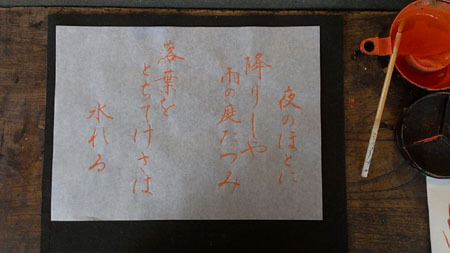 夜のほとに
降りしや
雨の庭たつみ
落葉を
とちてけさは
氷れる